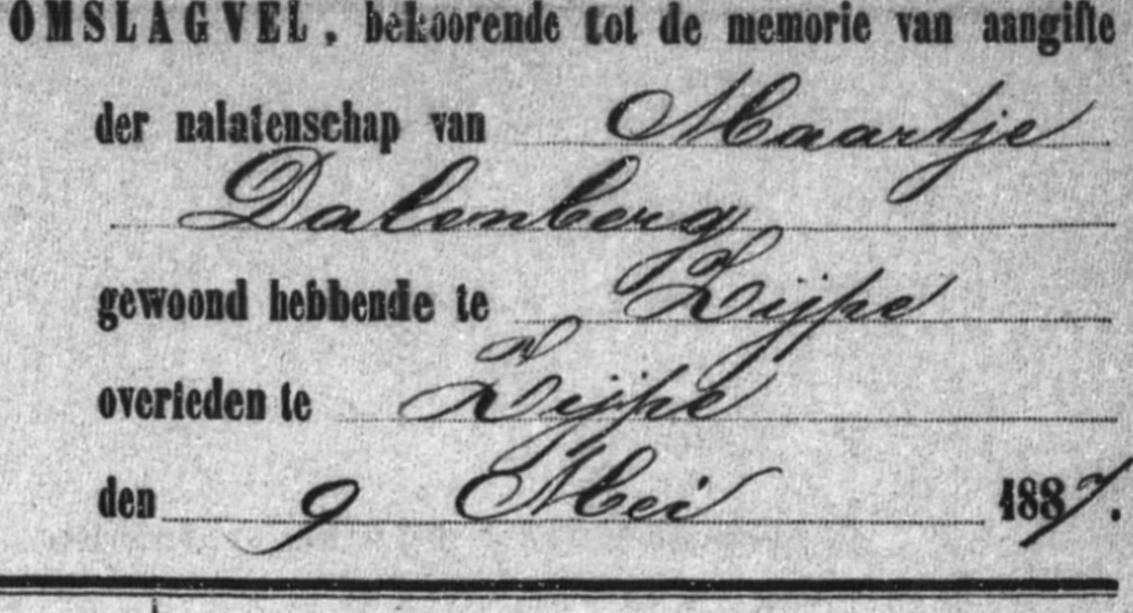 OMSLAGVEL, behoorende tot de memorie van aangifte
der nalatenschap van Maartje
Dalenberg
gewoond hebbende te Zijpe
overleden te Zijpe
den 9 Mei 1887.